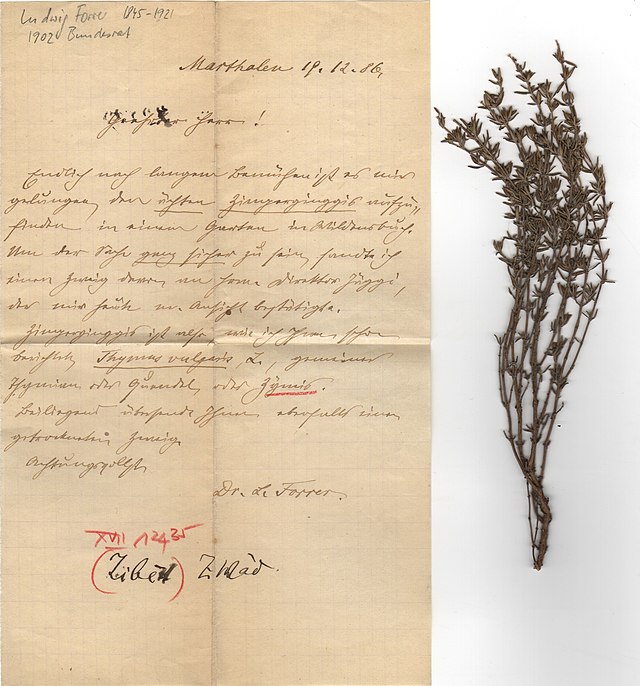 Ludwig Forrer 1845-1921
1902 Bundesrat
Marthalen 19.12.86.
Geehrter Herr!
Endlich nach langem Bemühen ist es mir
gelungen, den ächten Zimperginggis aufzu-
finden in einem Garten in Wildensbuch.
Um der Sache ganz sicher zu sein, sandte ich
einen Zweig davon an Herrn Direktor Jäggi,
der mir heute m. Ansicht bestätigte.
Zimperginggis ist also, wie ich Ihnen schon
berichtete Thymus vulgaris, L., gemeiner
Thymian oder Quendel, oder Zymis.
Beiliegend übersende Ihnen ebenfalls einen
getrockneten Zweig.
Achtungsvollst
Dr. L. Forrer.
XVII 12435
(Zibet) Zwäd.